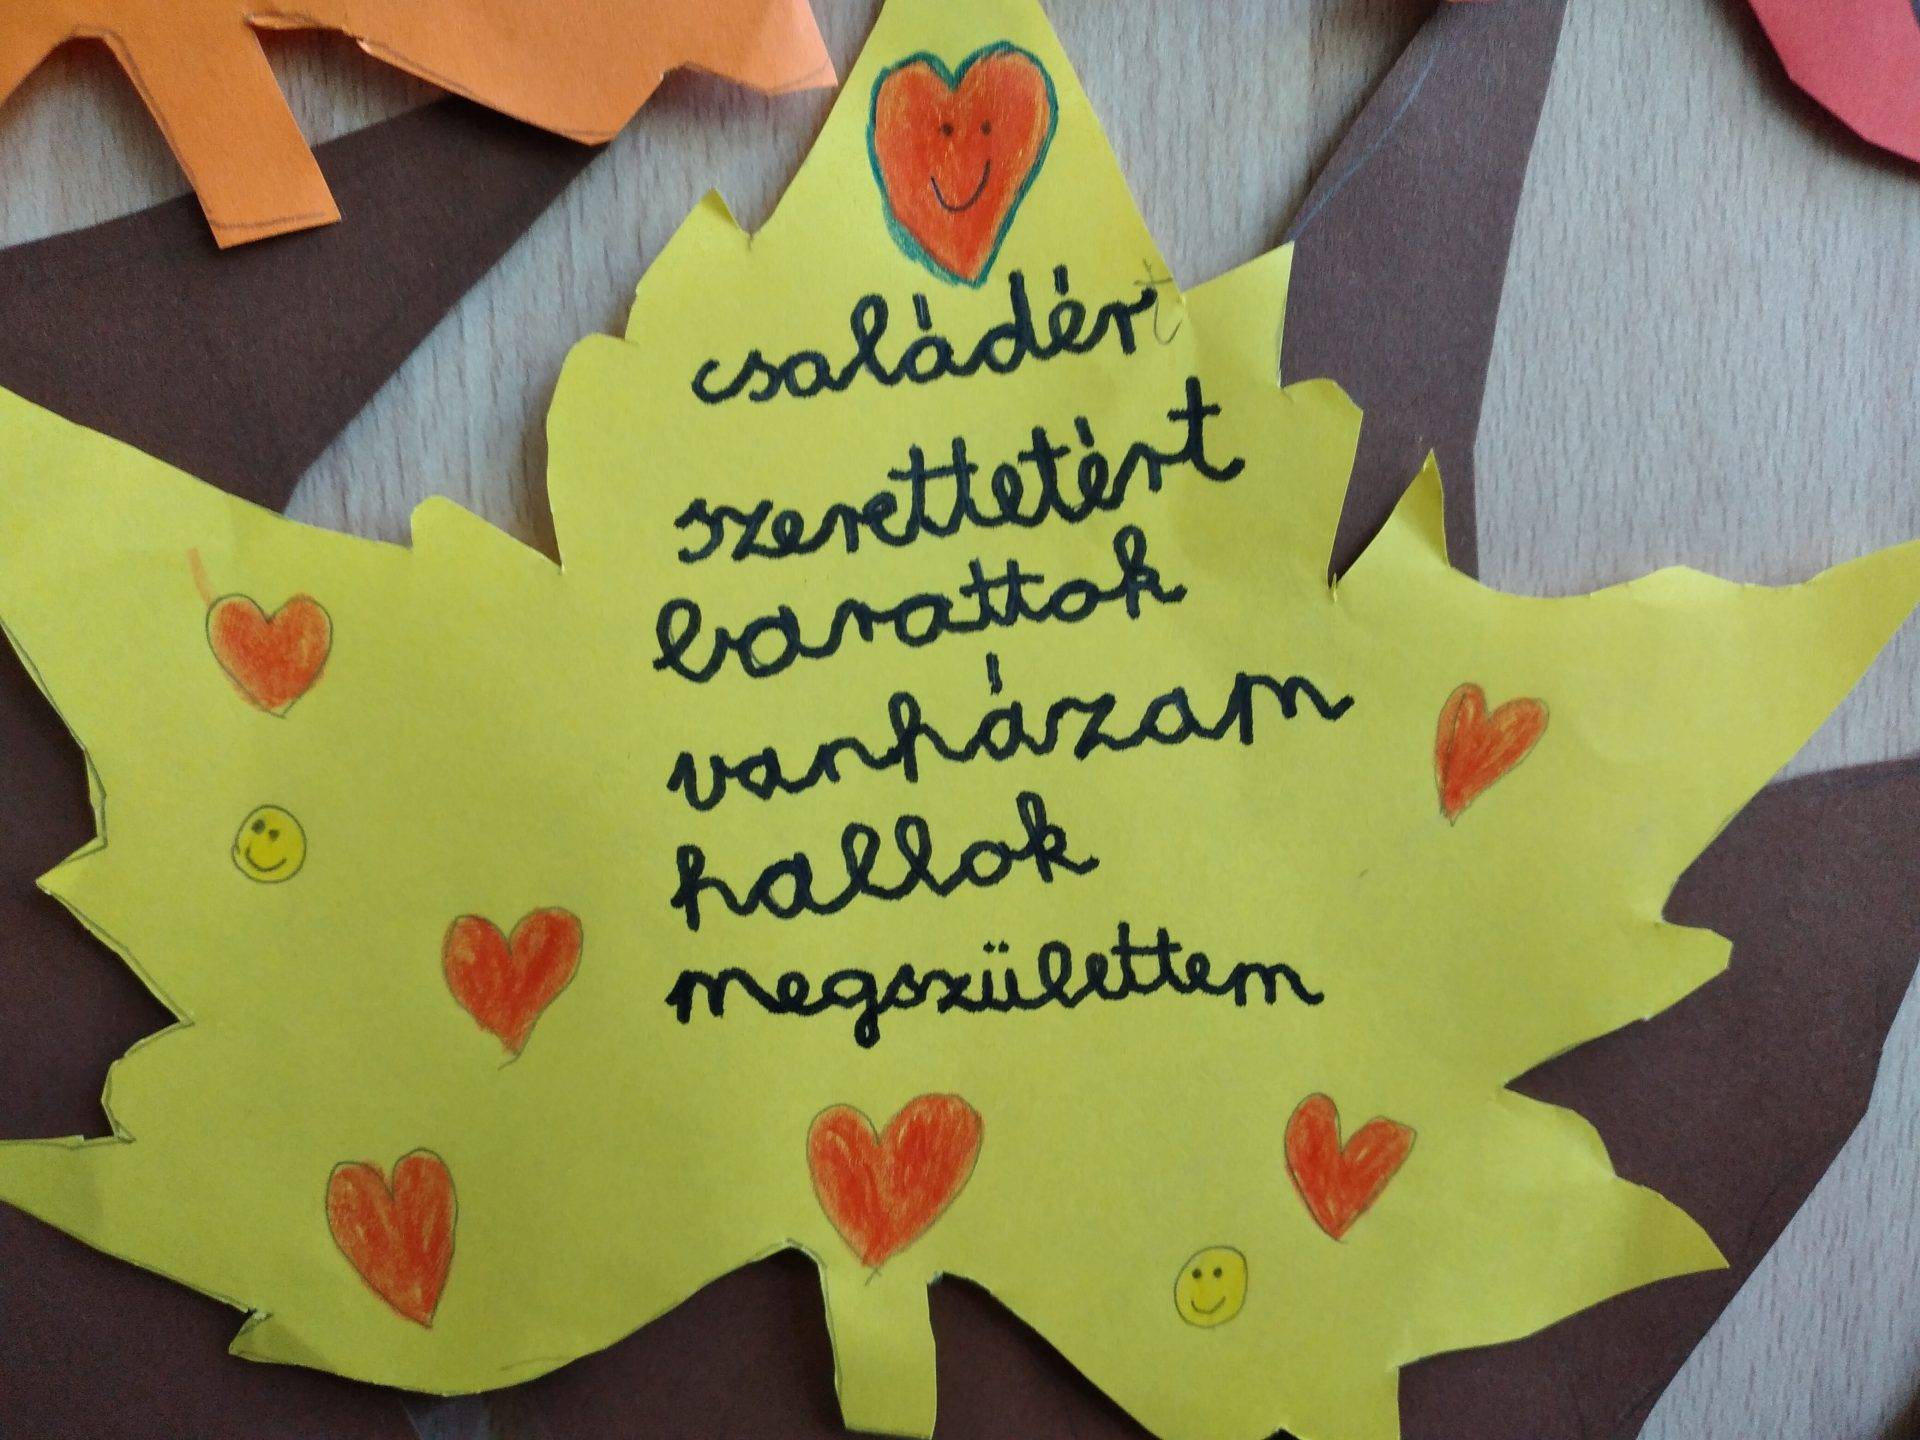 családért
szerettetért
barattok
vanházam
hallok
megszülettem